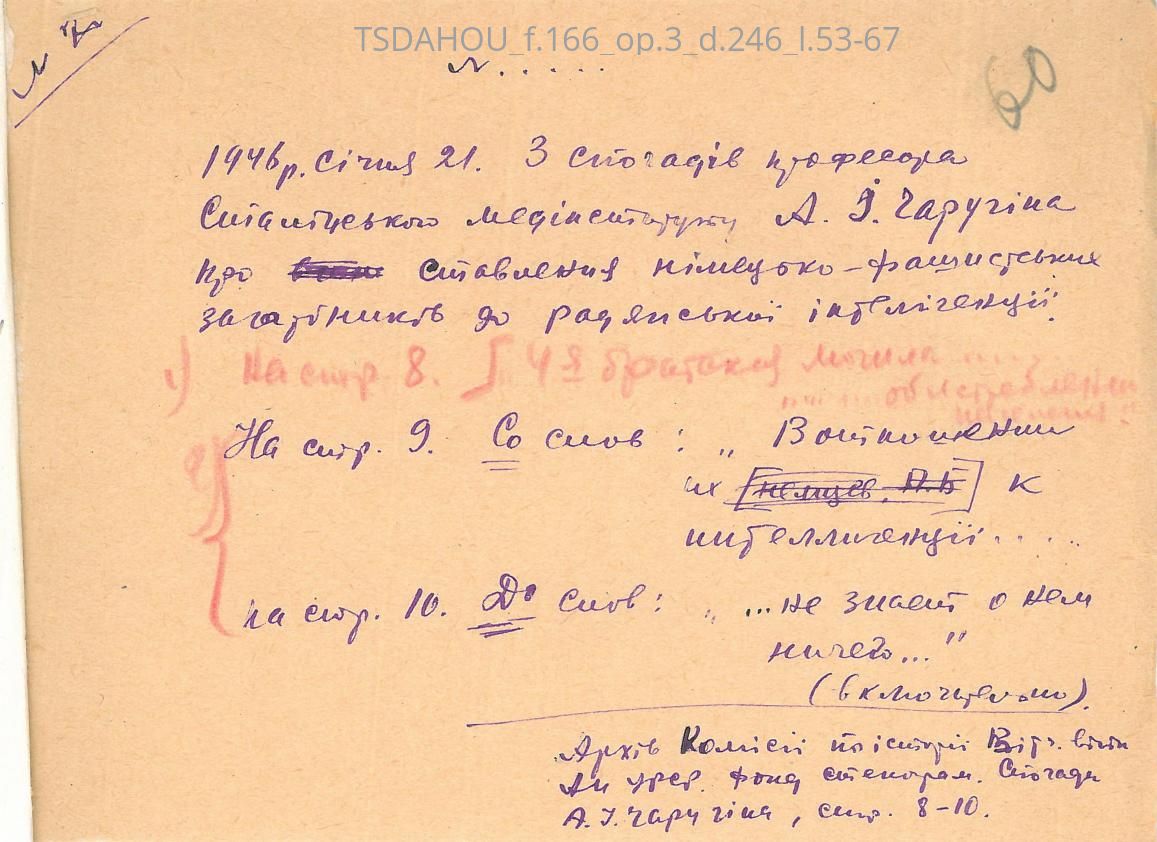 TSDAHOU_f.166_op.3_d.246_l.53-67
N.....
60
1946 р. Січня 21. З спогадів професора
Сталінського медінституту А. І. Чаругіна
про ставлення німецько-фашистських
загарбників до радянської інтелігенції.
1) На стр. 8. § 4й братская могила .....
"... ... об истреблении
населения"
2) На стр. 9. Со слов: „В отношении
их [немцев. П.Б] к
интеллигенції.....
на стр. 10. До слов: „...не знает о нем
ничего..."
(включительно).
Архів Комісії по історії Вітч. війни
АН УРСР. Фонд стенограм. Спогади
А. І. Чаругіна, стр. 8-10.